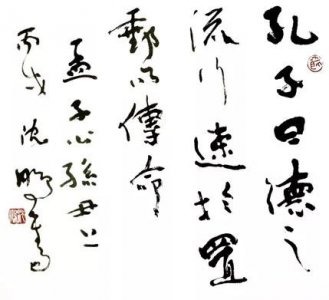 孔子曰德之
流行速於置
郵而傳命
孟子公孫丑上
丙戌沈鵬書